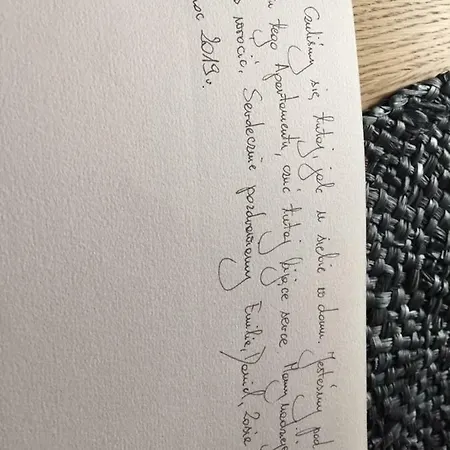 Czuliśmy się tutaj, jak u siebie w domu. Jesteśmy pod
tego Apartamentu, czuć tutaj bijące serce. Mamy nadzieję
wrócić. Serdecznie pozdrawiamy Emilia, Dawid, Zosia
2019r.